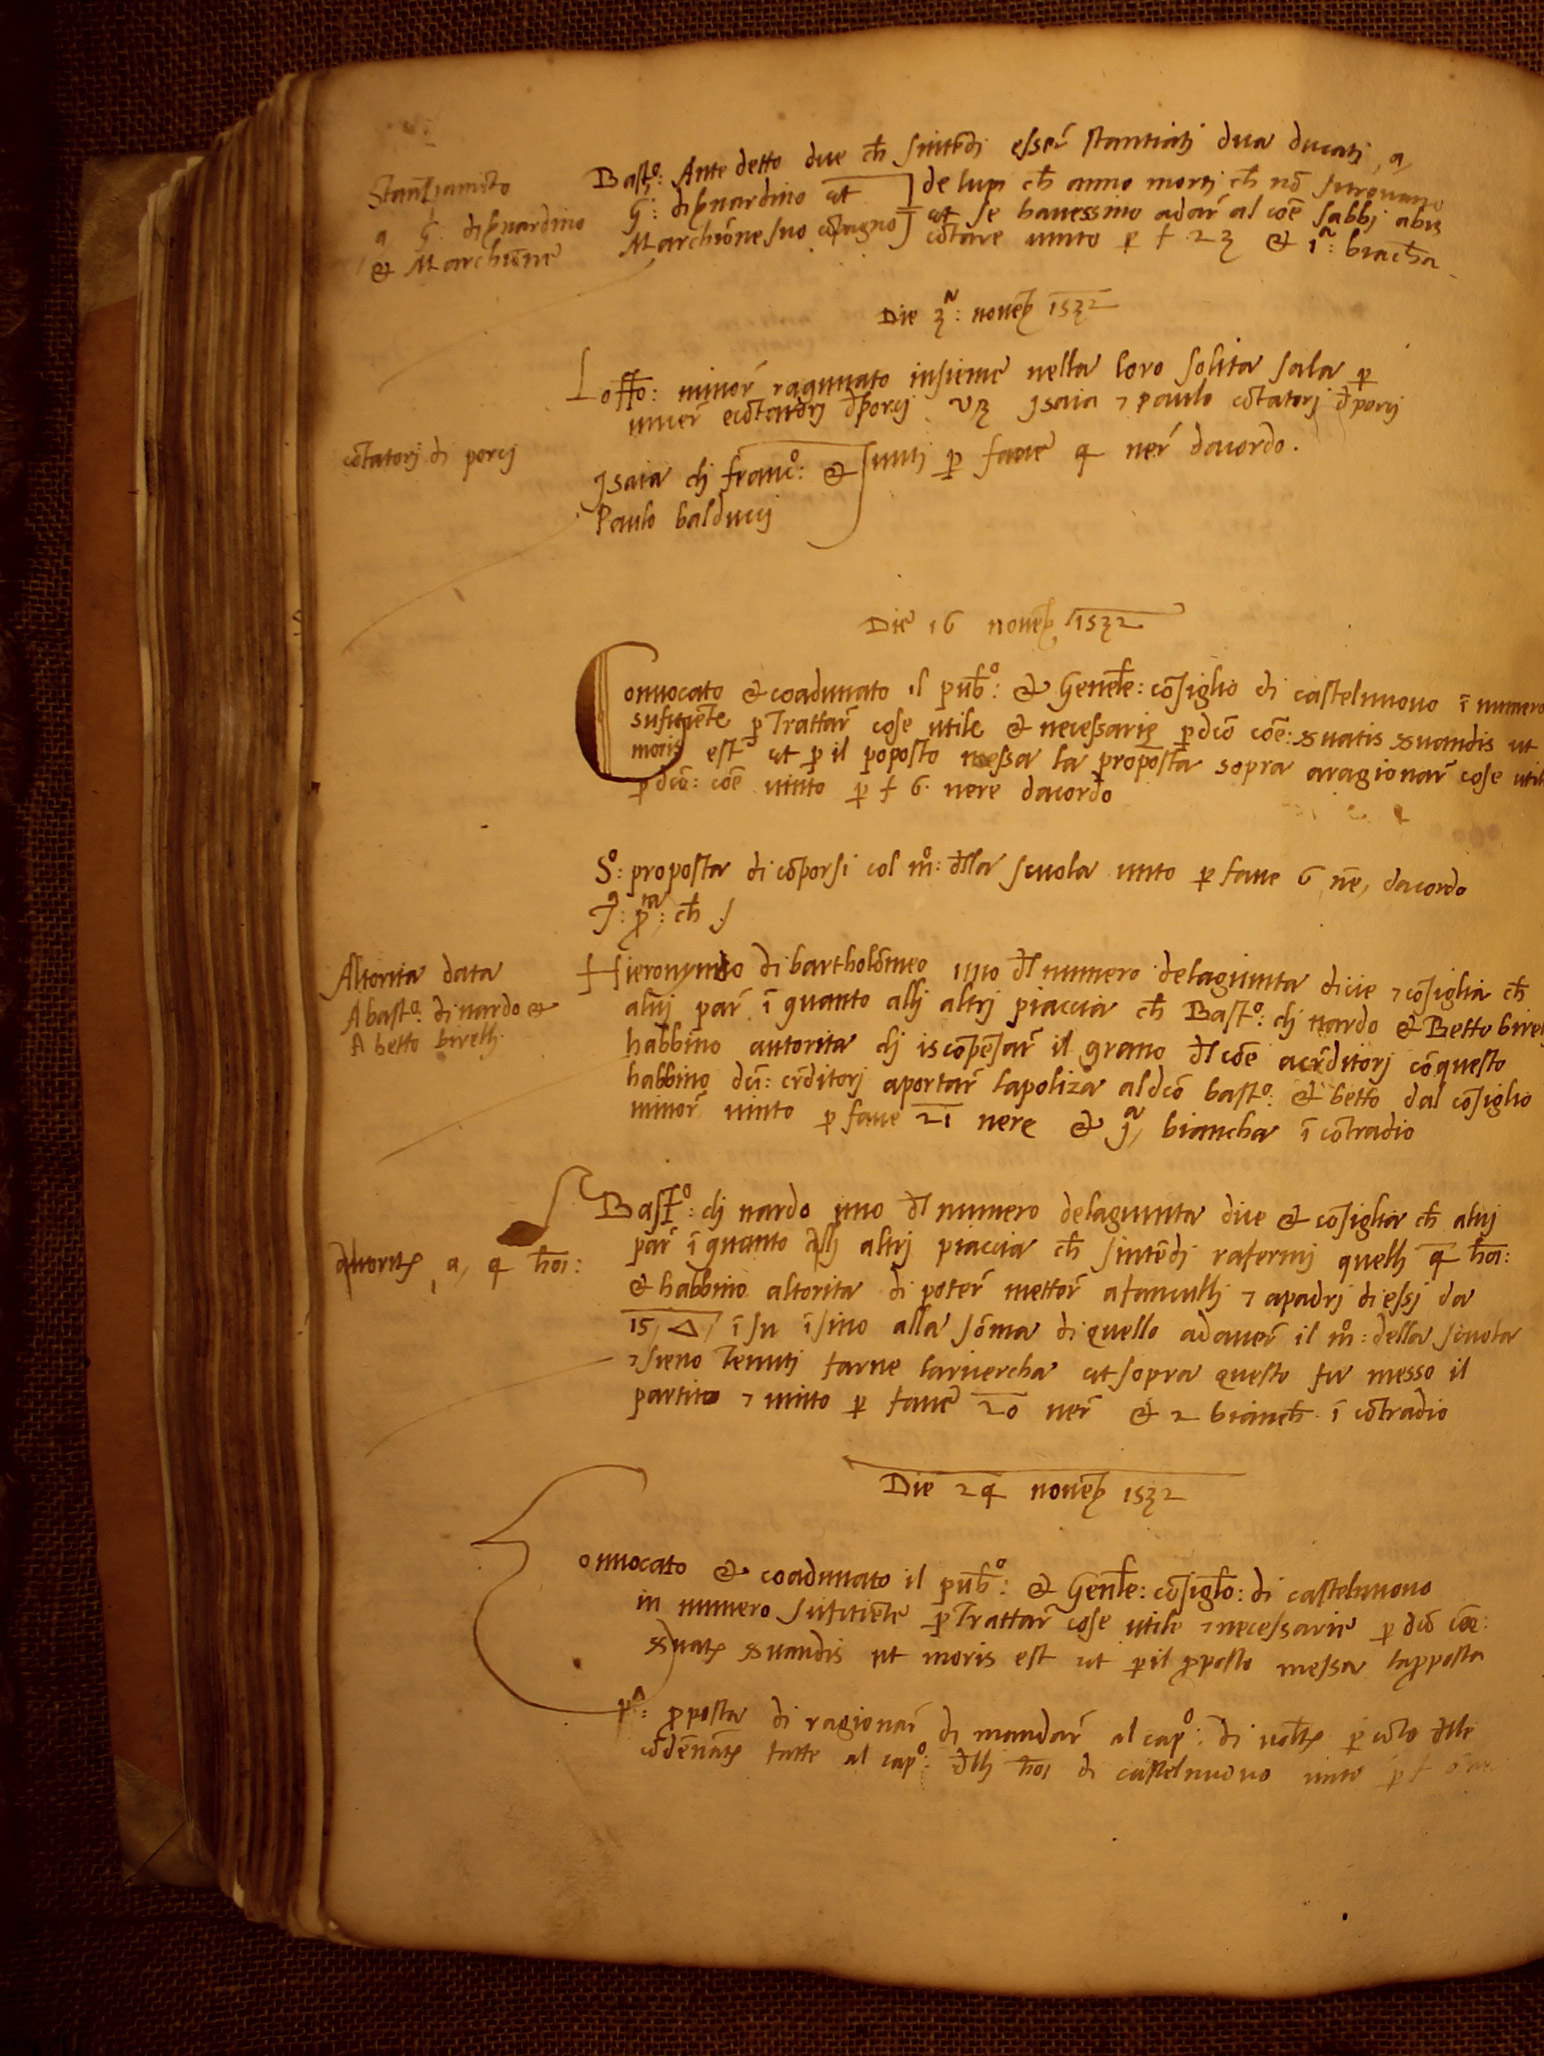 Stanziamēto
a G: di bnardino
& Marchiōne
Bastº: Ante detto dice ch̄ sintēdi esser̄ stantiati dua ducati a
G: di bnardino et
Marchiōne suo cōpagno
de lupi ch̄ anno morti ch̄ nō si trovano
et se havessino adar̄ al cōe sabbj abis
cōtare vinto p f 23 & 1ª: biācha
Die 3ª: novēb 1532
Loffº: minor̄ ragunato insieme nella loro solita sala p
vincer̄ e cōtatorj d porcj vz Jsaia 7 paulo cōtatorj d porcj
cōtatorj di porcj
Jsaia dj francº: &
Paulo balduccj
vinti p fave 4 ner̄ dacordo.
Die 16 novēb 1532
Convocato & coadunato il pubº: & Genēle: cōsiglio di castelnuovo ī numero
sufitiēte p Trattar̄ cose utile & necessarie p dcō cōe: svatis svandis ut
moris est et p il poposto messa la proposta sopra a ragionar̄ cose util
p dcō: cōe vinto p f 6. nere dacordo
Sº: proposta di cōporsi col mº: dla scuola vinto p fave 6 nē, dacordo
Hieronymo di bartholōmeo uno dl numero delagiunta dice 7 cōsiglia ch̄
aluj par̄ ī quanto allj altrj piaccia ch̄ Bastº: dj nardo & Betto birel
habbino autorita dj iscōpēsar̄ il grano dl cōe a crditorj cō questo
habbino dcī: crditorj aportar̄ lapoliza al dcō bastº: & betto dal cōsiglio
minor̄ vinto p fave 21 nere & jª, biancha ī cōtradio
Altorita data
A bastº: di nardo &
A betto birellj.
Bastº: dj nardo uno dl numero delagiunta dice & cōsiglia ch̄ aluj
par̄ ī quanto allj altrj piaccia ch̄ sintēdi rafermj quellj 4 hōi:
& habbino altorita di poter̄ metter̄ a fanciullj 7 a padrj di essj da
15, Δ, ī su īsino alla sōma di quello ad aver̄ il mº: della scuola
7 sieno Tenutj farne la ricercha et sopra questo fu messo il
partito 7 vinto p fave 20 ner̄ & 2 bianch̄ ī cōtradio
autorita, a, 4 hōi:
Die 24 novēb 1532
Convocato & coadunato il pubº: & Genle: cōsiglo: di castelnuovo
in numero sufitiēte p Trattar̄ cose utile 7 necessarie p dcō cōe:
svats svandis ut moris est et p il pposto messa la pposta
pª: pposta di ragionar̄ di mandar̄ al capº: di volts p cōto dle
cōdēnats fatte al capº: dllj hōi di castelnuovo vinto p f